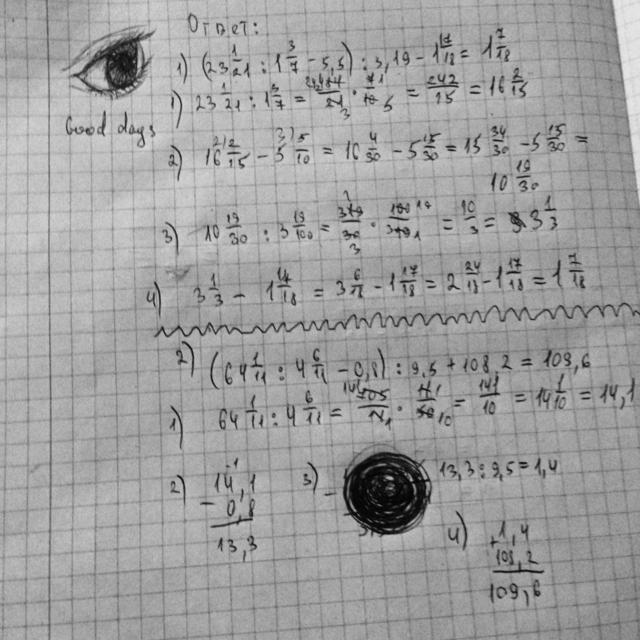 Ответ:
1) (23 1/21 : 1 3/7 - 5,5) : 3,19 - 1 17/18 = 1 7/18
Good days
1) 23 1/21 : 1 3/7 = = 242/15 = 16 2/15
2) 16 2/15 - 5 5/10 = 16 4/30 - 5 15/30 = 15 34/30 - 5 15/30 =
10 19/30
3) 10 19/30 : 3 19/100 = = 10/3 = 3 1/3
4) 3 1/3 - 1 17/18 = 3 6/18 - 1 17/18 = 2 24/18 - 1 17/18 = 1 7/18
2) (64 1/11 : 4 6/11 - 0,8) : 9,5 + 108,2 = 109,6
1) 64 1/11 : 4 6/11 = = 141/10 = 14 1/10 = 14,1
2) 14,1
- 0,8
13,3
3) - 13,3 : 9,5 = 1,4
4) 1,4
108,2
109,6